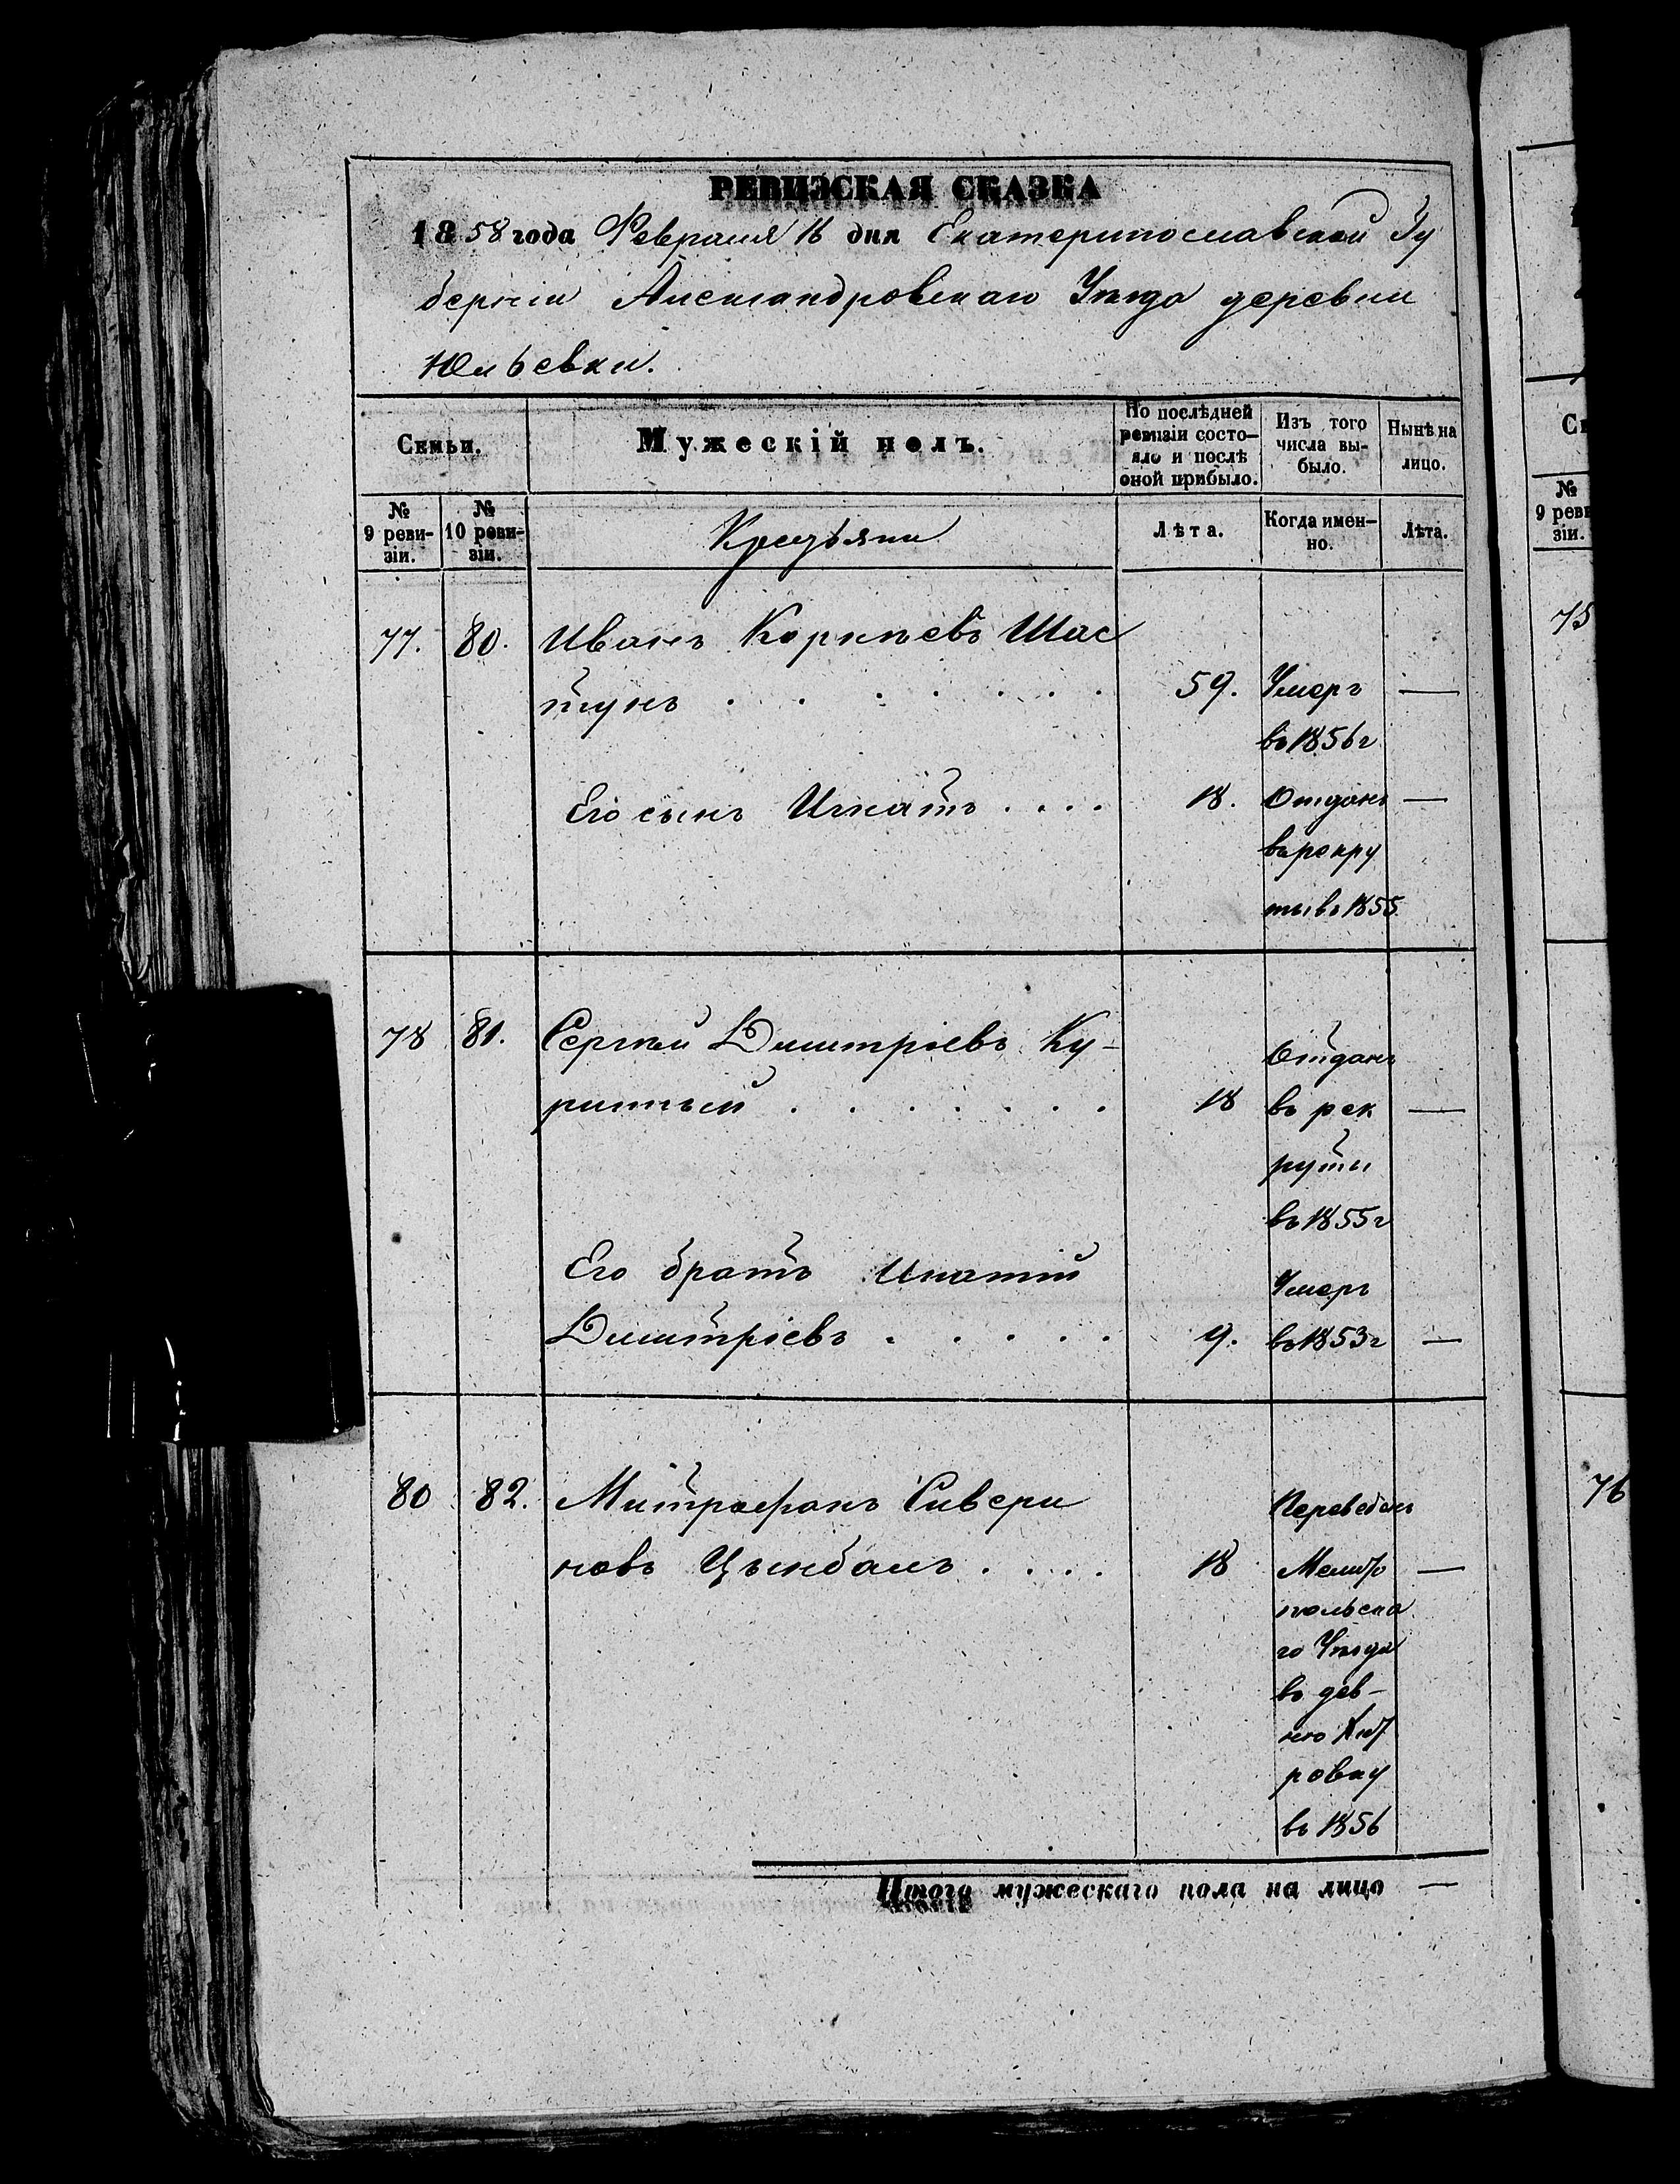 РЕВИЗСКАЯ СКАЗКА
1858 года Февраля 16 дня Екатеринославской Гу
берніи Александровскаго Уѣзда деревни
Юльевки.
Семьи.
Мужескій полъ.
По послѣдней
ревизіи состо-
яло и послѣ
оной прибыло.
Изъ того
числа вы-
было.
Нынѣ на
лицо.
№
9 реви-
зіи.
№
10 реви-
зіи.
Крестьяни
Лѣта.
Когда имен-
но.
Лѣта.
77. 80. Иванъ Корнѣевъ Шас
тунъ . . . . . . 59. Умеръ —
въ 1856 г
Его сынъ Игнатъ . . . . 18. Отданъ —
въ рекру
ты въ 1855.
78 81. Сергѣй Дмитріевъ Ку-
ринный . . . . . . . 18
Отданъ
въ рек —
руты
въ 1855 г
Его братъ Ипатій
Умеръ
Дмитріевъ . . . . . 9. въ 1853 г —
80 82. Митрофанъ Сивери
новъ Цымбалъ . . . . 18
Переведенъ
Мелито —
польска
го Уѣзда
въ дев-
ню
ровку
въ 1856
Итого мужескаго пола на лицо —
№
9 реви
зіи.
75
76